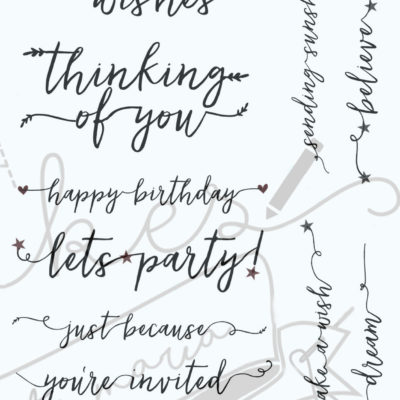 wishes
thinking
of you
happy birthday
lets party!
just because
you're invited
sending sunsh
believe
ake a wish
dream